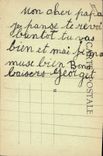 mon cher papa
je panse te revoir
bientot tu vas
bien et moi je ma
muse bien Bons
baisers Georget
CARTE POSTALE